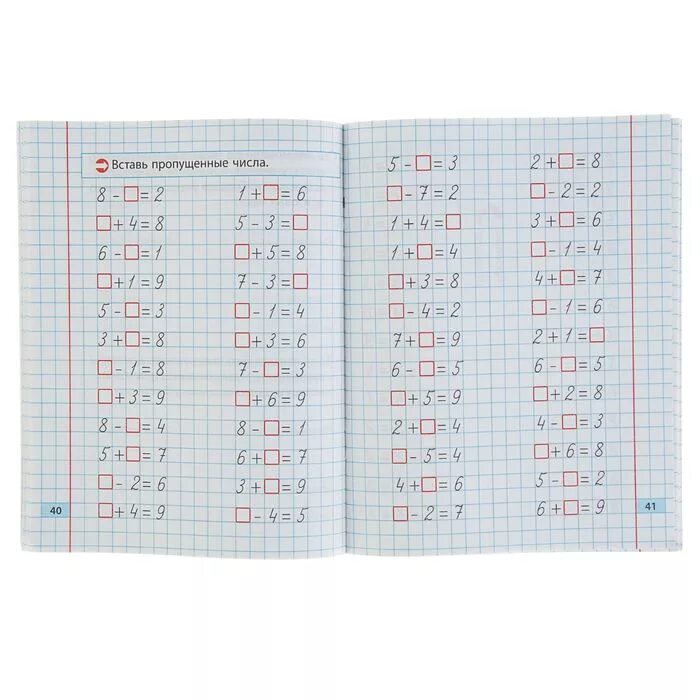 Вставь пропущенные числа.
8 - □ = 2
□ + 4 = 8
6 - □ = 1
□ + 1 = 9
5 - □ = 3
3 + □ = 8
□ - 1 = 8
□ + 3 = 9
8 - □ = 4
5 + □ = 7
□ - 2 = 6
□ + 4 = 9
1 + □ = 6
5 - 3 = □
□ + 5 = 8
7 - 3 = □
□ - 1 = 4
□ + 3 = 6
7 - □ = 3
□ + 6 = 9
8 - □ = 1
6 + □ = 7
3 + □ = 9
□ - 4 = 5
40
5 - □ = 3
□ - 7 = 2
1 + 4 = □
1 + □ = 4
□ + 3 = 8
□ - 4 = 2
7 + □ = 9
6 - □ = 5
□ + 5 = 9
2 + □ = 4
□ - 5 = 4
4 + □ = 6
□ - 2 = 7
2 + □ = 8
□ - 2 = 2
3 + □ = 6
□ - 1 = 4
4 + □ = 7
□ - 1 = 6
2 + 1 = □
6 - □ = 5
□ + 2 = 8
4 - □ = 3
□ + 6 = 8
5 - □ = 2
6 + □ = 9
41